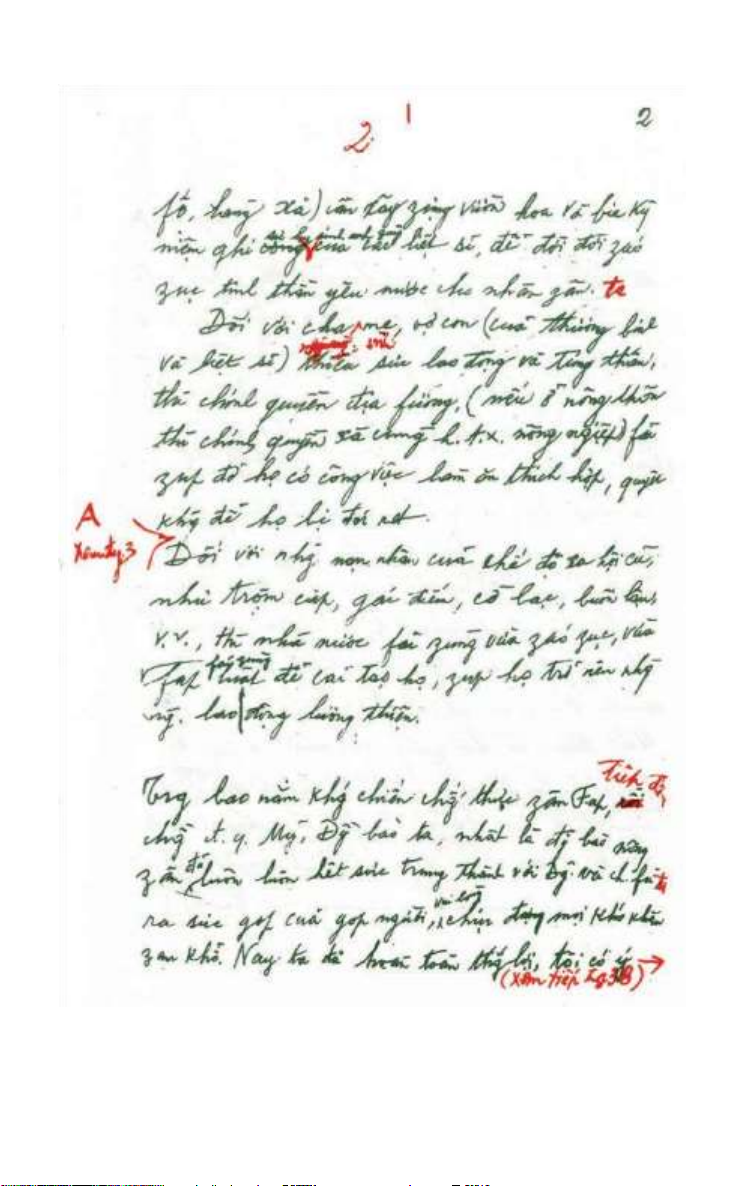 1
2
2
fố, làng xã) cần xây zựng vườn hoa và bia kỷ
niệm ghi sự hy sinh anh zũng của các liệt sĩ, để đời đời záo
zục tinh thần yêu nước cho nhân zân. ta
Đối với cha mẹ, vợ con (của thương binh
và liệt sĩ) mà thiếu sức lao động và túng thiếu,
thì chính quyền địa fương, (nếu ở nông thôn
thì chính quyền xã cùng h.t.x. nông ngiệp) fải
zúp đỡ họ có công việc làm ăn thích hợp, quyết
khg để họ bị đói rét.
A
Xem tiếp tg. 3
Đối với nhg nạn nhân của chế độ xã hội cũ,
như trộm cắp, gái điếm, cờ bạc, buôn lậu,
v.v., thì nhà nước fải zùng vừa záo zục, vừa
fải zùng
fáp luật để cải tạo họ, zúp họ trở nên nhg
ng. lao động lương thiện.
Trg bao năm khg chiến chg thực zân Fáp, tiếp đến
chg đ.q. Mỹ, Đg bào ta, nhất là đg bào nông
zân đã luôn luôn hết sức trung thành với Đg và ch. fủ ta
ra sức góp của góp người, vui lòng chịu đựng mọi khó khăn
zan khổ. Nay ta đã hoàn toàn thg lợi, tôi có ý →
(xem tiếp tg 3B)